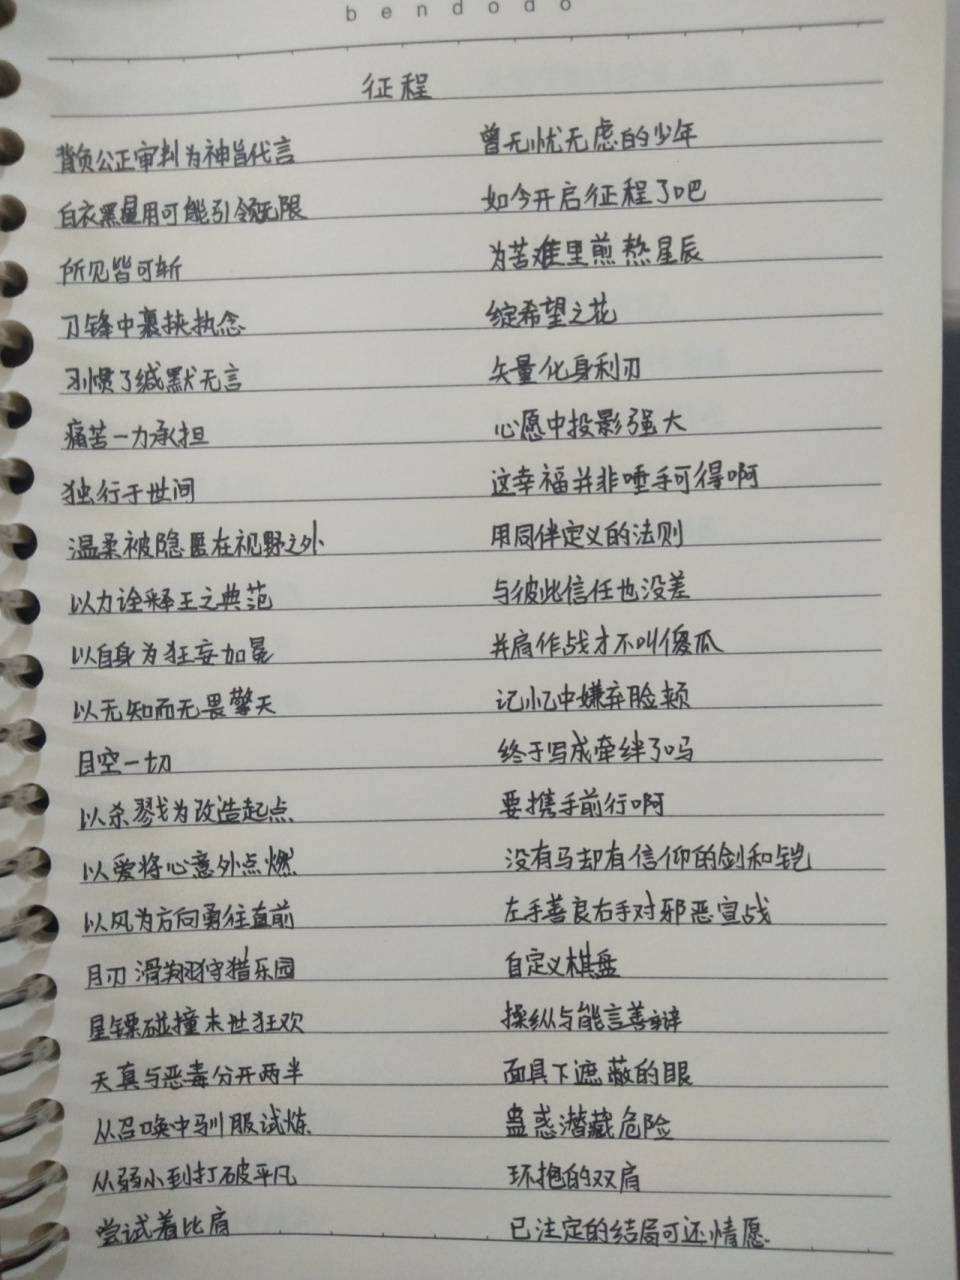 bendodo
征程
背负公正审判为神旨代言
白衣黑量用可能引领无限
所见皆可斩
刀锋中裹挟执念
习惯了缄默无言
痛苦一力承担
独行于世间
温柔被隐匿在视野之外
以力诠释王之典范
以自身为狂妄加冕
以无知而无畏擎天
目空一切
以杀戮为改造起点
以爱将心意外点燃
以风为方向勇往直前
月刃滑翔狩猎乐园
星镖碰撞末世狂欢
天真与恶毒分开两半
从召唤中驯服试炼
从弱小到打破平凡
尝试着比肩
曾无忧无虑的少年
如今开启征程了吧
为苦难里煎熬星辰
绽希望之花
矢量化身利刃
心愿中投影强大
这幸福并非唾手可得啊
用同伴定义的法则
与彼此信任也没差
并肩作战才不叫傻瓜
记忆中嫌弃脸颊
终于写成牵绊了吗
要携手前行啊
没有马却有信仰的剑和铠
左手善良右手对邪恶宣战
自定义棋盘
操纵与能言善辩
面具下遮蔽的眼
蛊惑潜藏危险
环抱的双肩
已注定的结局可还情愿